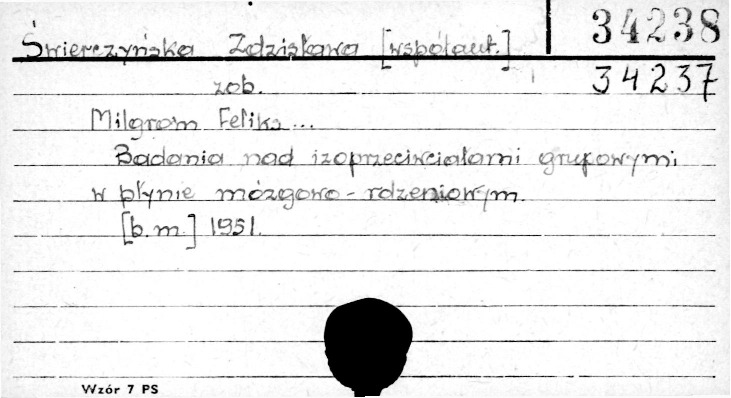 Świerczyńska Zdzisława [współaut.] 34238
zob. 34237
Milgrom Feliks...
Badania nad izoprzeciwciałami grupowymi
w płynie mózgowo-rdzeniowym.
[b.m.] 1951.
Wzór 7 PS